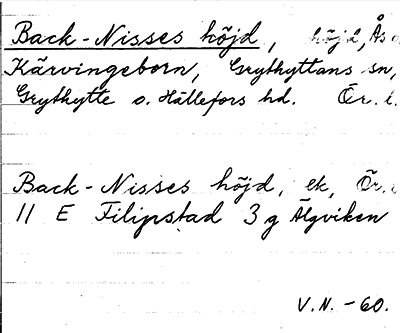 Back-Nisses höjd, höjd, Ås o.
Kärvingeborn, Grythyttans sn,
Grythytte o. Hällefors hd. Ör. l.
Back-Nisses höjd, ek, Ör.
11 E Filipstad 3 g Älgviken
V.N. -60.